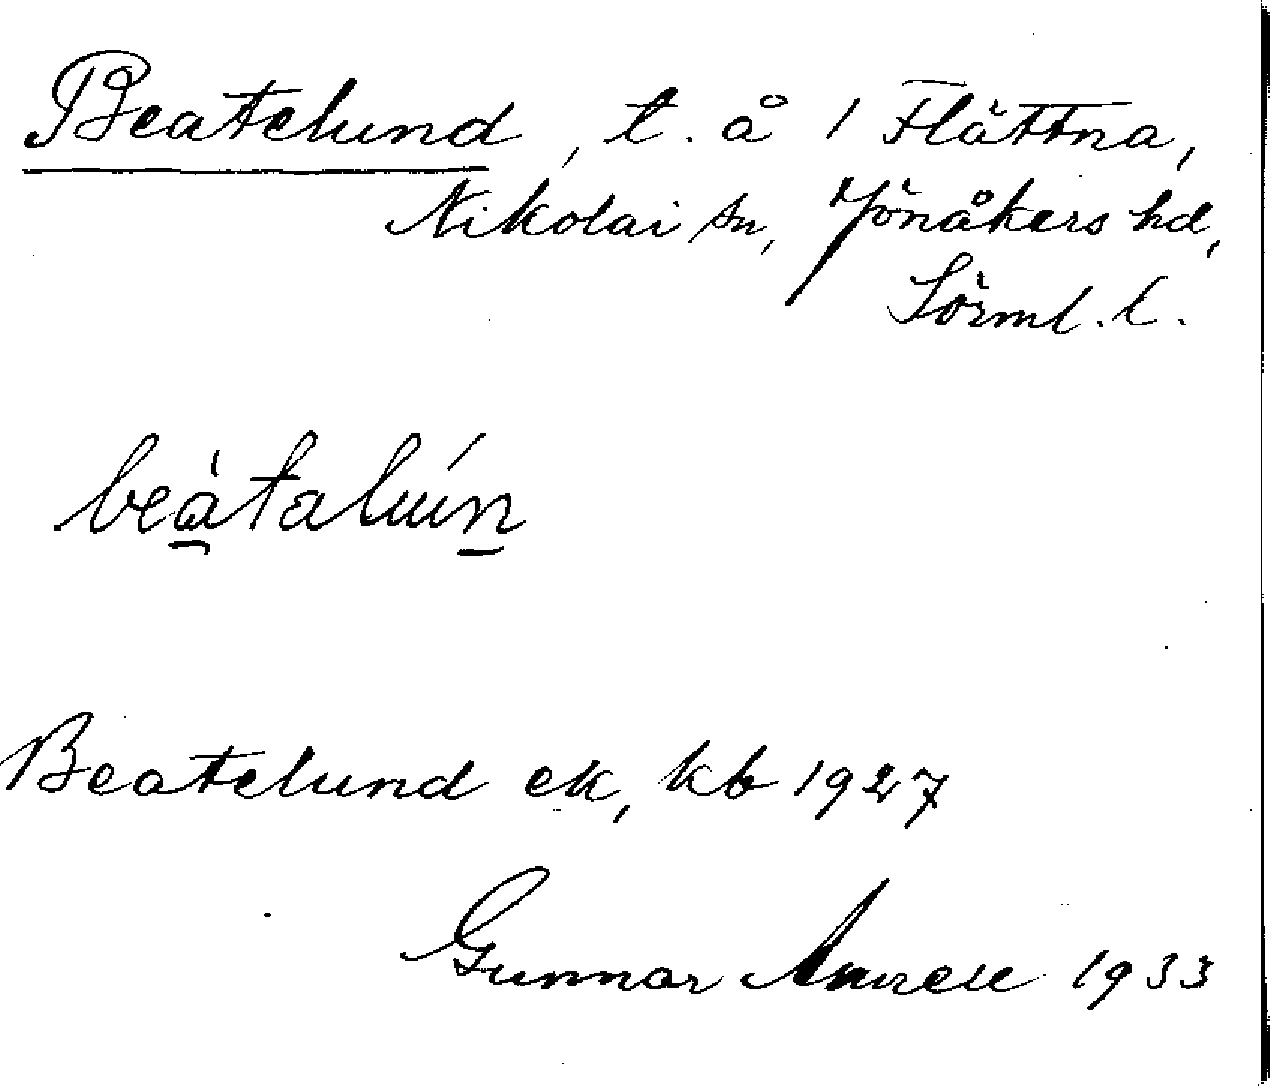 Beatelund, t. å 1 Flättna,
Nikolai sn, Jönåkers hd,
Sörml. l.
beàtalún
Beatelund ek, kb 1927
Gunnar 1933